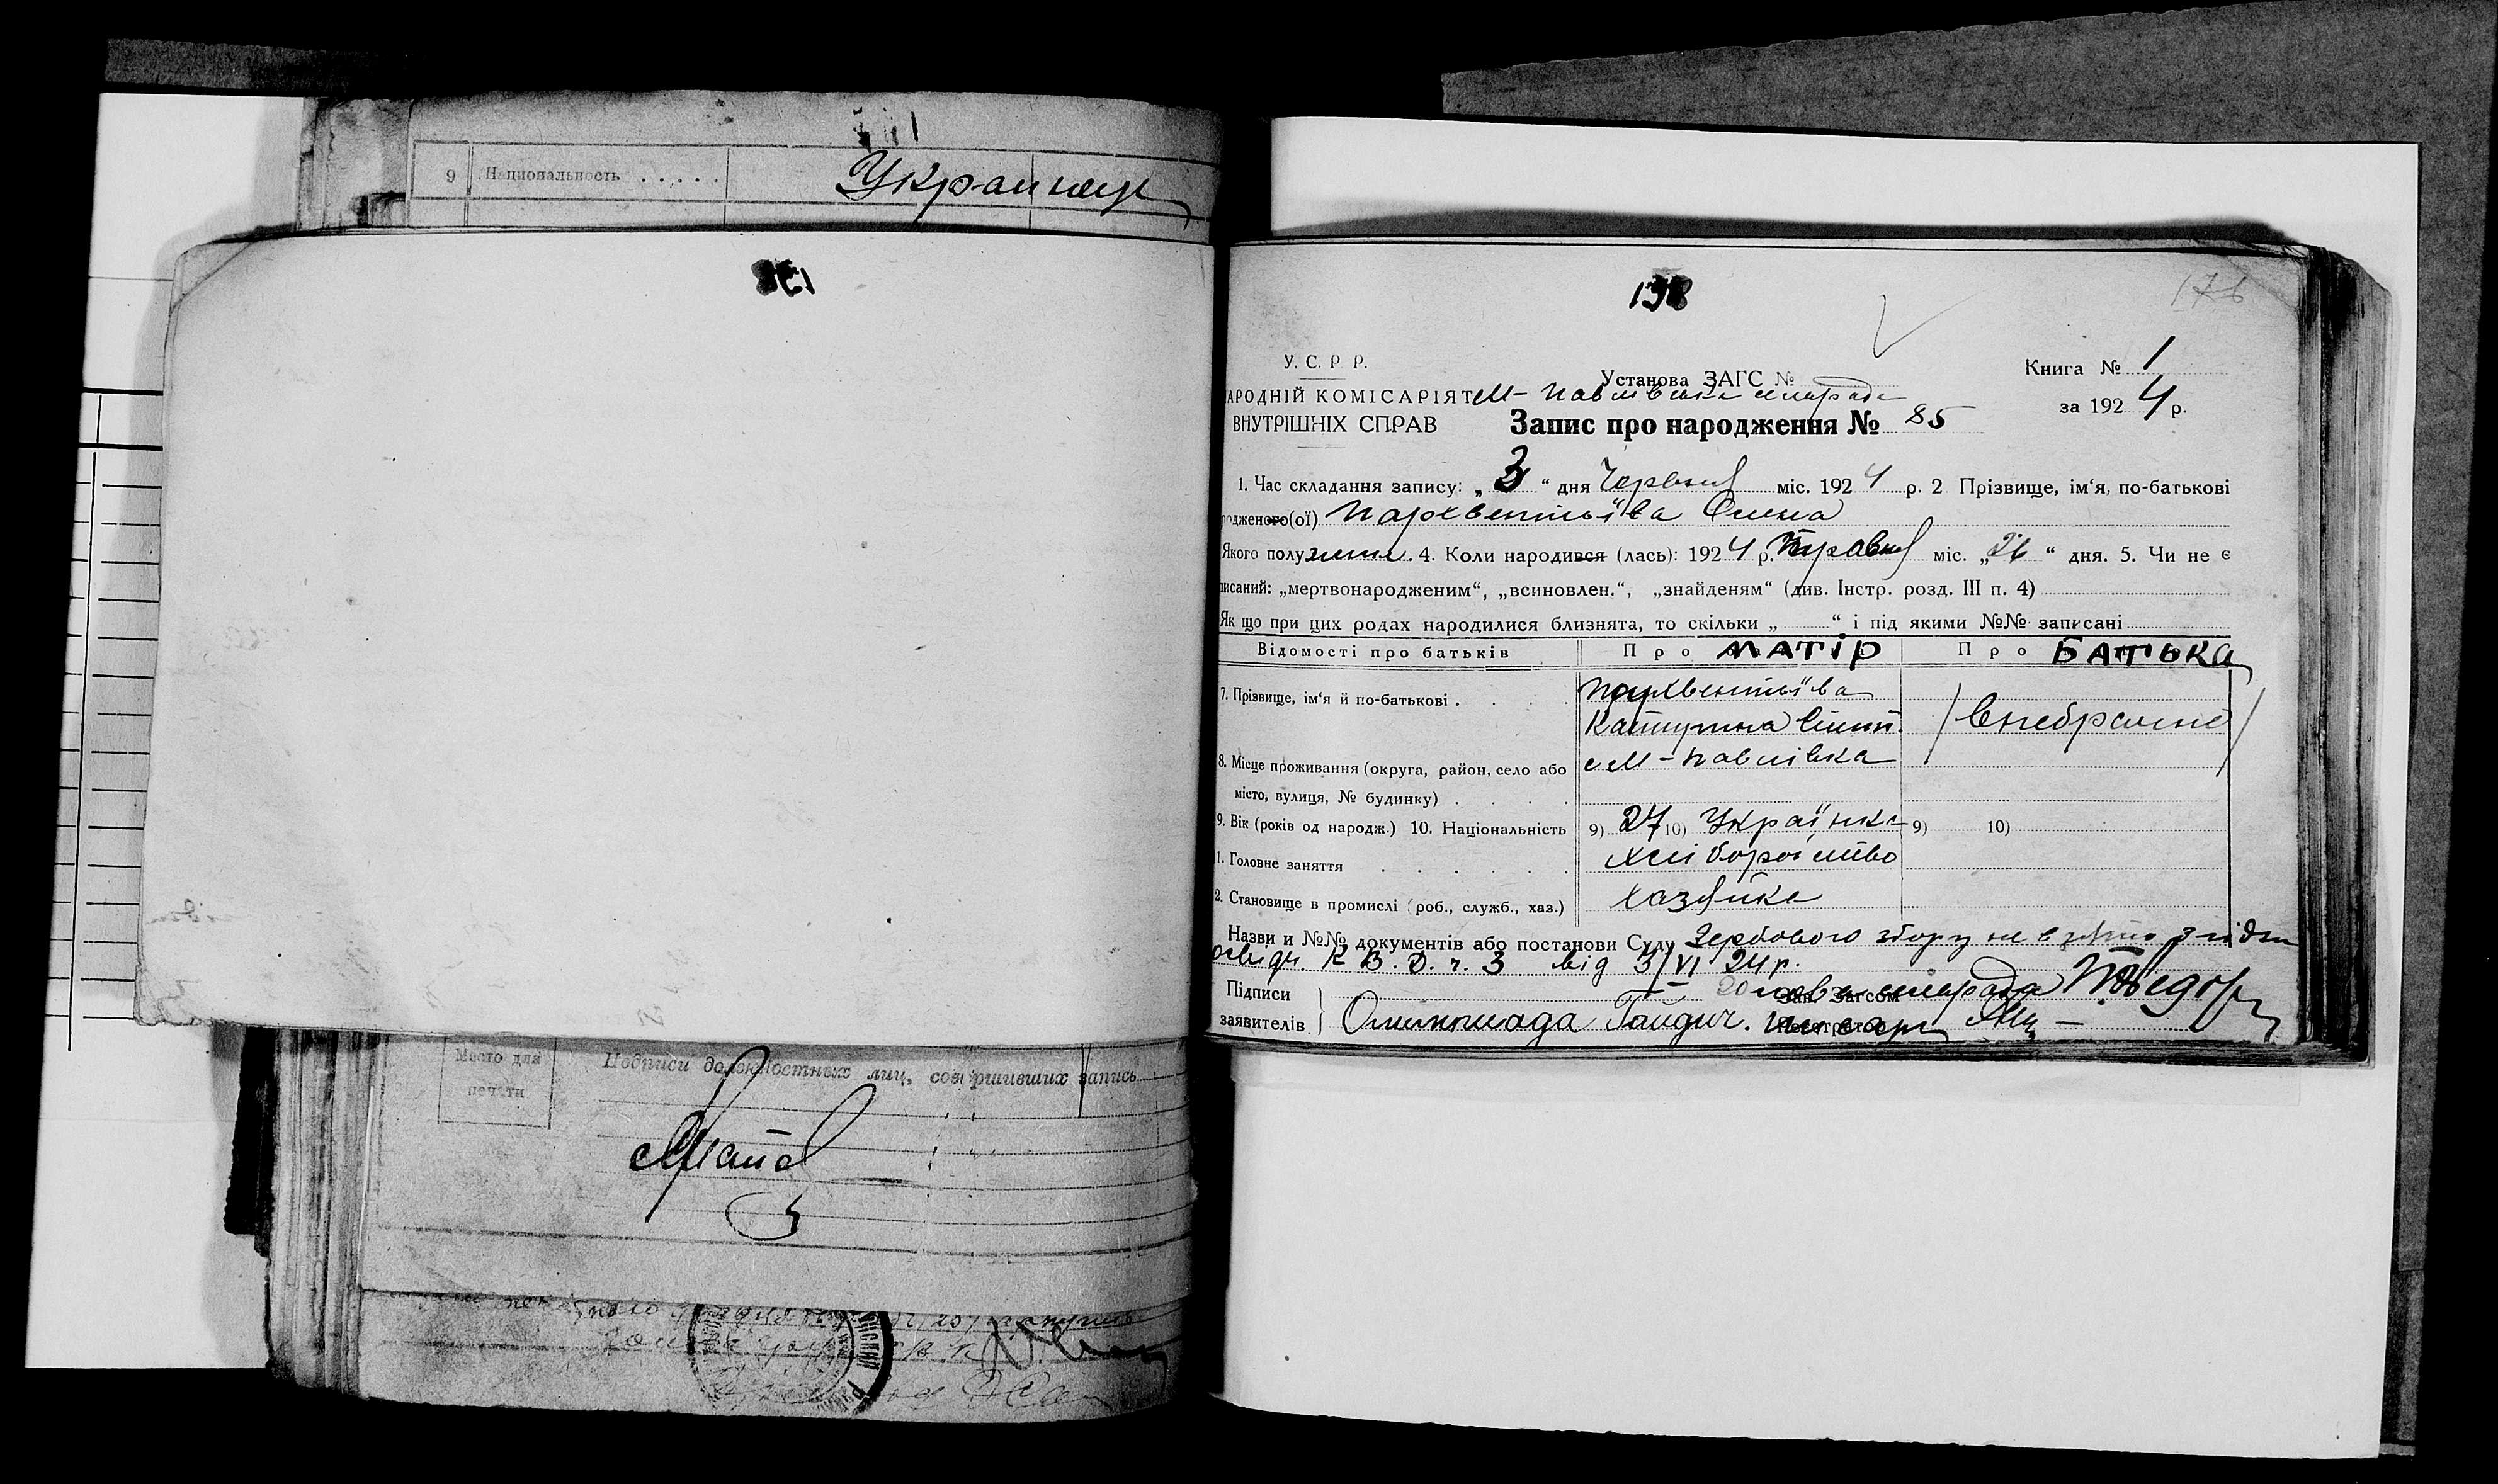 9 Национальность . . . . .
Украинец
138
176
У. С. Р Р.
Установа ЗАГС №
Книга № 1
АРОДНІЙ КОМІСАРІЯТ М-Павлівська сільрада
за 1924 р.
ВНУТРІШНІХ СПРАВ
Запис про народження № 85
1. Час складання запису: „ 3 “ дня Червня міс. 1924 р. 2 Прізвище, ім'я, по-батькові
родженого(ої) Пархвентьїва Олена
Якого полу жіноч. 4. Коли народився (лась): 1924 р. Травня міс. „ 26 “ дня. 5. Чи не є
писаний: „мертвонародженим“, „всиновлен.“, „знайденям“ (див. Інстр. розд. III п. 4)
Як що при цих родах народилися близнята, то скільки „ “ і під якими №№ записані
Відомості про батьків Про МАТІР Про БАТЬКА
7. Прізвище, ім'я й по-батькові . . . . Пархвентьїва
Катерина
/ Внебрачно /
8. Місце проживання (округа, район, село або с М-Павлівка
місто, вулиця, № будинку) . . . .
9. Вік (років од народж.) 10. Національність 9) 27 10) Українка 9) 10)
11. Головне заняття . . . . . . хліборобство
2. Становище в промислі (роб., служб., хаз.) хазяйка
Назви и №№ документів або постанови Суду Гербового збору не взято згідно
посвідч. К В. Д. ч. 3 від 3/VI 24 р.
Підписи Голова сільради
Зав. Загсом
заявителів Реєстратор
Место для
печати
Подписи должностных лиц, совершивших запись